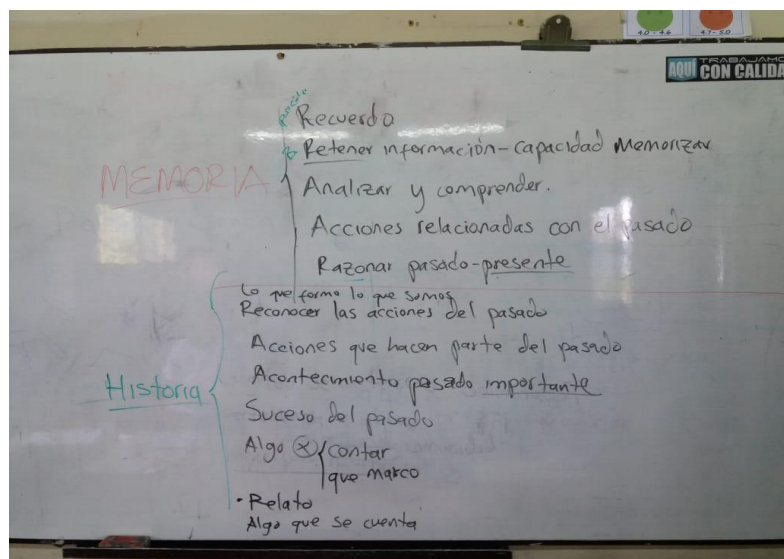 4.0 - 4.6
4.7 - 5.0
TRABAJAMOS
AQUÍ CON CALIDA
Recuerdo
Retener información - capacidad Memorizar
MEMORIA
Analizar y comprender.
Acciones relacionadas con el pasado
Razonar pasado-presente
Lo que formo lo que somos
Reconocer las acciones del pasado
Acciones que hacen parte del pasado
Historia
Acontecimiento pasado importante
Suceso del pasado
Algo x contar
que marco
• Relato
Algo que se cuenta